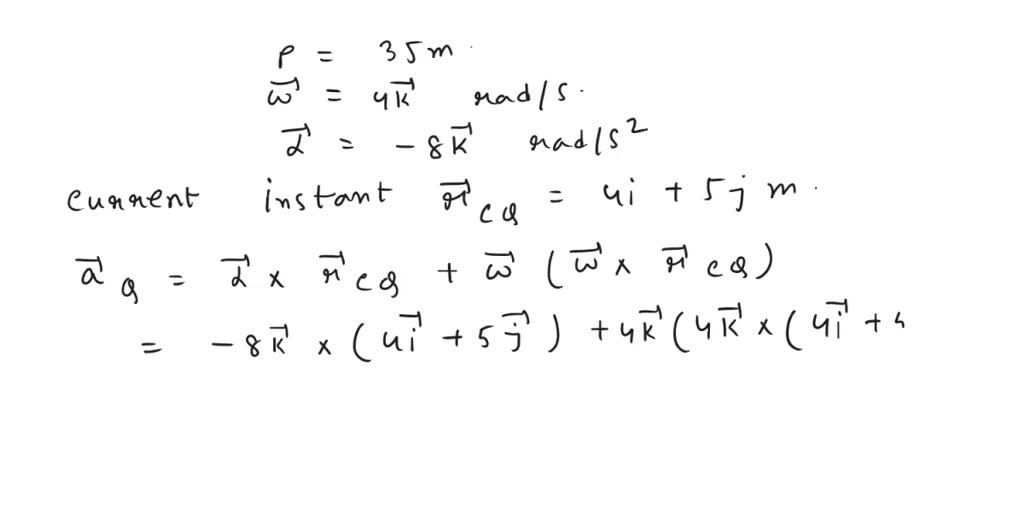 ρ = 35 m.
ω⃗ = 4k⃗ rad/s.
α⃗ = - 8k⃗ rad/s²
current instant r⃗CQ = 4i + 5j m.
a⃗Q = α⃗ × r⃗CQ + ω⃗ (ω⃗ × r⃗CQ)
= - 8k⃗ × (4i⃗ + 5j⃗) + 4k⃗ (4k⃗ × (4i⃗ +